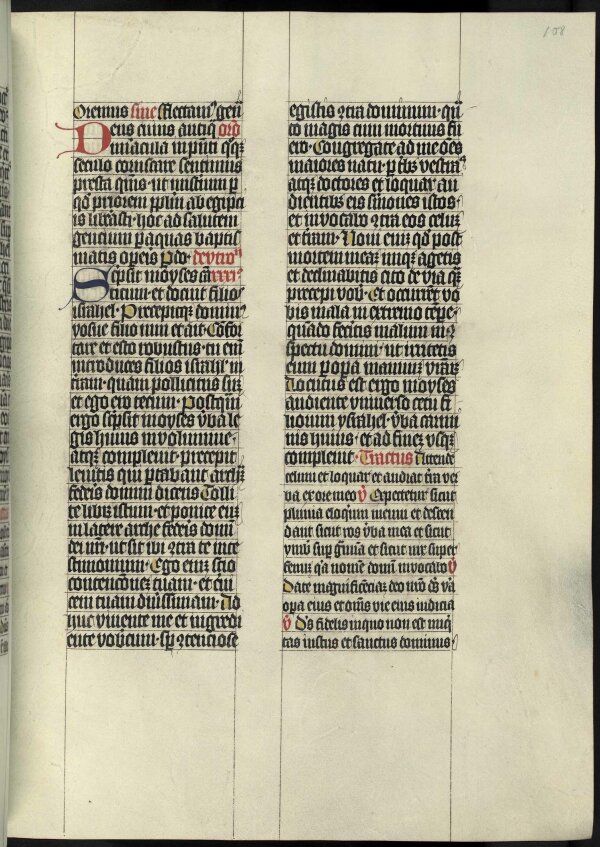 158
Oremus sine flectam⁹ genu
Deus cuius antiq̄ or̄o
miracula in p̄nti q̄q̄
seculo coruscare sentimus
presta q̄m̄s · ut nostrum p
qd̄ priorem pplm̄ ab egipti
is liberasti · hoc ad salutem
gentium p aquas baptis
matis opeis P do· deutro⁹
Scripsit moyses cā xxxi⁹
nticum et docuit filios
israhel· Precepitq̄ domin⁹
yosue filio nun et ait· Cōfor
tare et esto robustus· tu em̄
introduces filios israhel in
t̄ram· quam pollicitus sū
et ego ero tecum· Postq̄m
ergo sc̄psit moyses v̄ba le
gis huius in volumine·
atq̄ compleuit· precepit
leuitis qui ptabant arch̄
federis domini dicens Tolli
te libr̄ istum· et ponite eū
in latere arche federis dom̄
dei vr̄i· ut sit ibi 9tra te in te
stimonium· Ego em̄ scio
contencōnez tuam· et cui
cem tuam durissimam· Ad
huc viuente me et ingredi
ente vobiscum· sp 9tenciose
egistis 9tra dominum· q̄n
to magis cum mortuus fu
ero· Congregate ad me oēs
maiores natu p tb̄s vestra⁹
atq̄ doctores et loquar au
dientibus eis s̄mones istos·
et inuocabo 9tra eos celuz
et t̄ram· Noui em̄ qd̄ post
mortem meaz iniq̄ agetis
et declinabitis cito de via q̄
precepi vob̄· Et occurrēt vo
bis mala in extremo tēpe·
quando fec̄itis malum in 9
spectu domini· ut irritetis
eum p opa manuū vr̄arū
Locutus est ergo moyses
audiente vniuerso cetu fi
liorum ysrahel· v̄ba carmi
nis huius· et ad finez vsq̄
compleuit· Tractus Attende
celum et loquar et audiat t̄ra ver
ba ex ore meo V Expectetur sicut
pluuia eloquiū meum et descen
dant sicut ros v̄ba mea et sicut
ymb̄ sup g̃mia et sicut nix super
fenuz q̄a nomē dom̄ inuocabo V
Date magnificenciaz deo nr̄o d̄s v̄a
opa eius et om̄s vie eius iudicia
V D̄s fidelis in quo non est iniq̄
tas iustus et sanctus dominus·